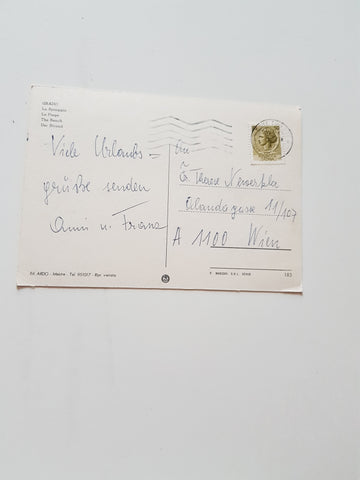 GRADO
La Spiaggia
La Plage
The Beach
Der Strand
Viele Urlaubs =
grüße senden
Anni u. Franz
An
Therese
Alandagasse 11/107
A 1100 Wien
Ed. ARDO - Mestre - Tel. - Rip. vietata
183